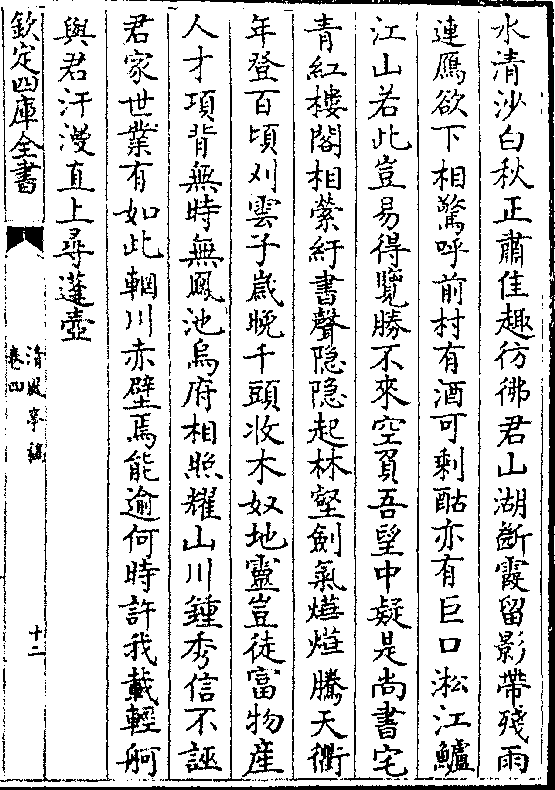 水清沙白秋正肅佳趣彷彿君山湖斷霞留影帶殘雨
連鴈欲下相驚呼前村有酒可剩酤亦有巨口淞江鱸
江山若此豈易得覽勝不來空負吾望中疑是尚書宅
青紅樓閣相縈紆書聲隐隐起林壑劍氣爗爗騰天衢
年登百頃刈雲子歲晚千頭收木奴地靈豈徒富物産
人才項背無時無鳳池烏府相照耀山川鍾秀信不誣
君家世業有如此輞川赤壁焉能逾何時許我載輕舸
與君汗漫直上尋蓬壺
欽定四庫全書
清風亭稿
卷四
十二